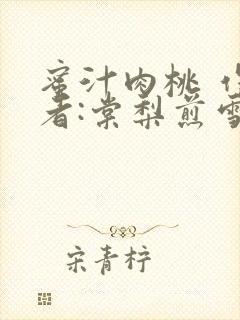 蜜汁肉桃 作
者:棠梨煎雪
宋青柠